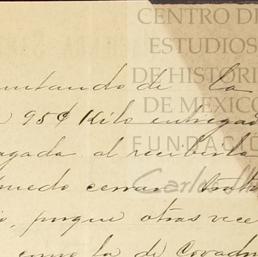 CENTRO DE
ESTUDIOS
DE HISTORI
DE MEXICO
FUNDACIÓ
untando de la
95¢ Kilo entregad
agada al recibirlo
puedo cerrar
porque otras vece
como la de